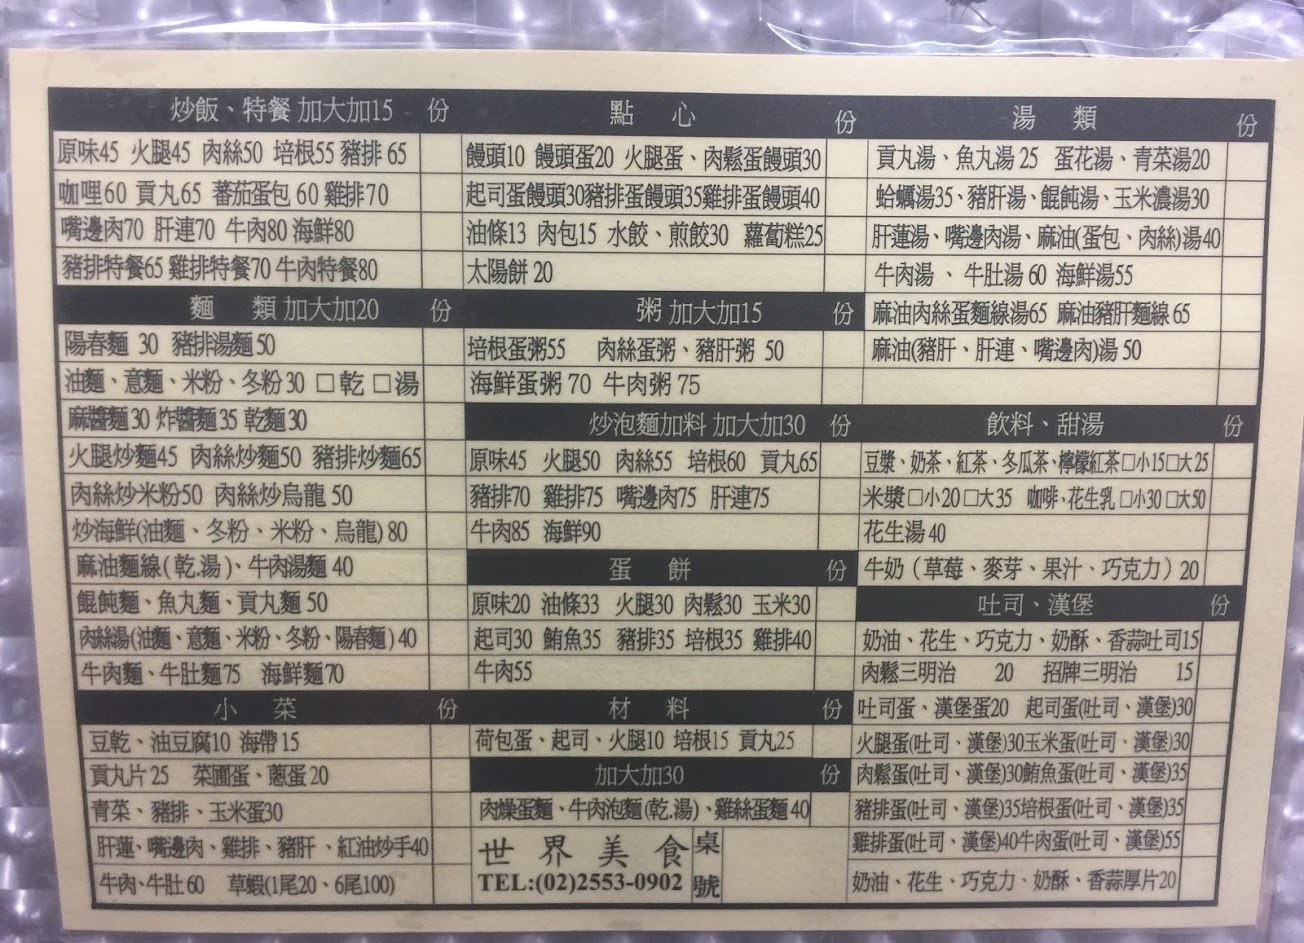 炒飯、特餐 加大加15 份
原味45 火腿45 肉絲50 培根55 豬排 65
咖哩60 貢丸65 蕃茄蛋包 60 雞排70
嘴邊肉70 肝連70 牛肉80 海鮮80
豬排特餐65 雞排特餐70 牛肉特餐80
麵 類 加大加20 份
陽春麵 30 豬排湯麵50
油麵、意麵、米粉、冬粉30 □乾 □湯
麻醬麵30 炸醬麵35 乾麵30
火腿炒麵45 肉絲炒麵50 豬排炒麵65
肉絲炒米粉50 肉絲炒烏龍 50
炒海鮮(油麵、冬粉、米粉、烏龍) 80
麻油麵線(乾.湯)、牛肉湯麵 40
餛飩麵、魚丸麵、貢丸麵 50
肉絲湯(油麵、意麵、米粉、冬粉、陽春麵) 40
牛肉麵、牛肚麵75 海鮮麵70
小 菜 份
豆乾、油豆腐10 海帶15
貢丸片25 菜圃蛋、蔥蛋20
青菜、豬排、玉米蛋30
肝蓮、嘴邊肉、雞排、豬肝、紅油炒手40
牛肉、牛肚60 草蝦(1尾20、6尾100)
點 心 份
饅頭10 饅頭蛋20 火腿蛋、肉鬆蛋饅頭30
起司蛋饅頭30豬排蛋饅頭35雞排蛋饅頭40
油條13 肉包15 水餃、煎餃30 蘿蔔糕25
太陽餅 20
粥 加大加15 份
培根蛋粥55 肉絲蛋粥、豬肝粥 50
海鮮蛋粥 70 牛肉粥 75
炒泡麵加料 加大加30 份
原味45 火腿50 肉絲55 培根60 貢丸65
豬排70 雞排75 嘴邊肉75 肝連75
牛肉85 海鮮90
蛋 餅 份
原味20 油條33 火腿30 肉鬆30 玉米30
起司30 鮪魚35 豬排35 培根35 雞排40
牛肉55
材 料 份
荷包蛋、起司、火腿10 培根15 貢丸25
加大加30 份
肉燥蛋麵、牛肉泡麵(乾.湯)、雞絲蛋麵 40
世界美食
TEL:(02)2553-0902
桌號
湯 類 份
貢丸湯、魚丸湯 25 蛋花湯、青菜湯20
蛤蠣湯35、豬肝湯、餛飩湯、玉米濃湯30
肝蓮湯、嘴邊肉湯、麻油(蛋包、肉絲)湯40
牛肉湯 、牛肚湯 60 海鮮湯55
麻油肉絲蛋麵線湯65 麻油豬肝麵線 65
麻油(豬肝、肝連、嘴邊肉)湯 50
飲料、甜湯 份
豆漿、奶茶、紅茶、冬瓜茶、檸檬紅茶□小15□大25
米漿□小20□大35 咖啡、花生乳 □小30 □大50
花生湯 40
牛奶（草莓、麥芽、果汁、巧克力）20
吐司、漢堡 份
奶油、花生、巧克力、奶酥、香蒜吐司15
肉鬆三明治 20 招牌三明治 15
吐司蛋、漢堡蛋20 起司蛋(吐司、漢堡)30
火腿蛋(吐司、漢堡)30玉米蛋(吐司、漢堡)30
肉鬆蛋(吐司、漢堡)30鮪魚蛋(吐司、漢堡)35
豬排蛋(吐司、漢堡)35培根蛋(吐司、漢堡)35
雞排蛋(吐司、漢堡)40牛肉蛋(吐司、漢堡)55
奶油、花生、巧克力、奶酥、香蒜厚片20